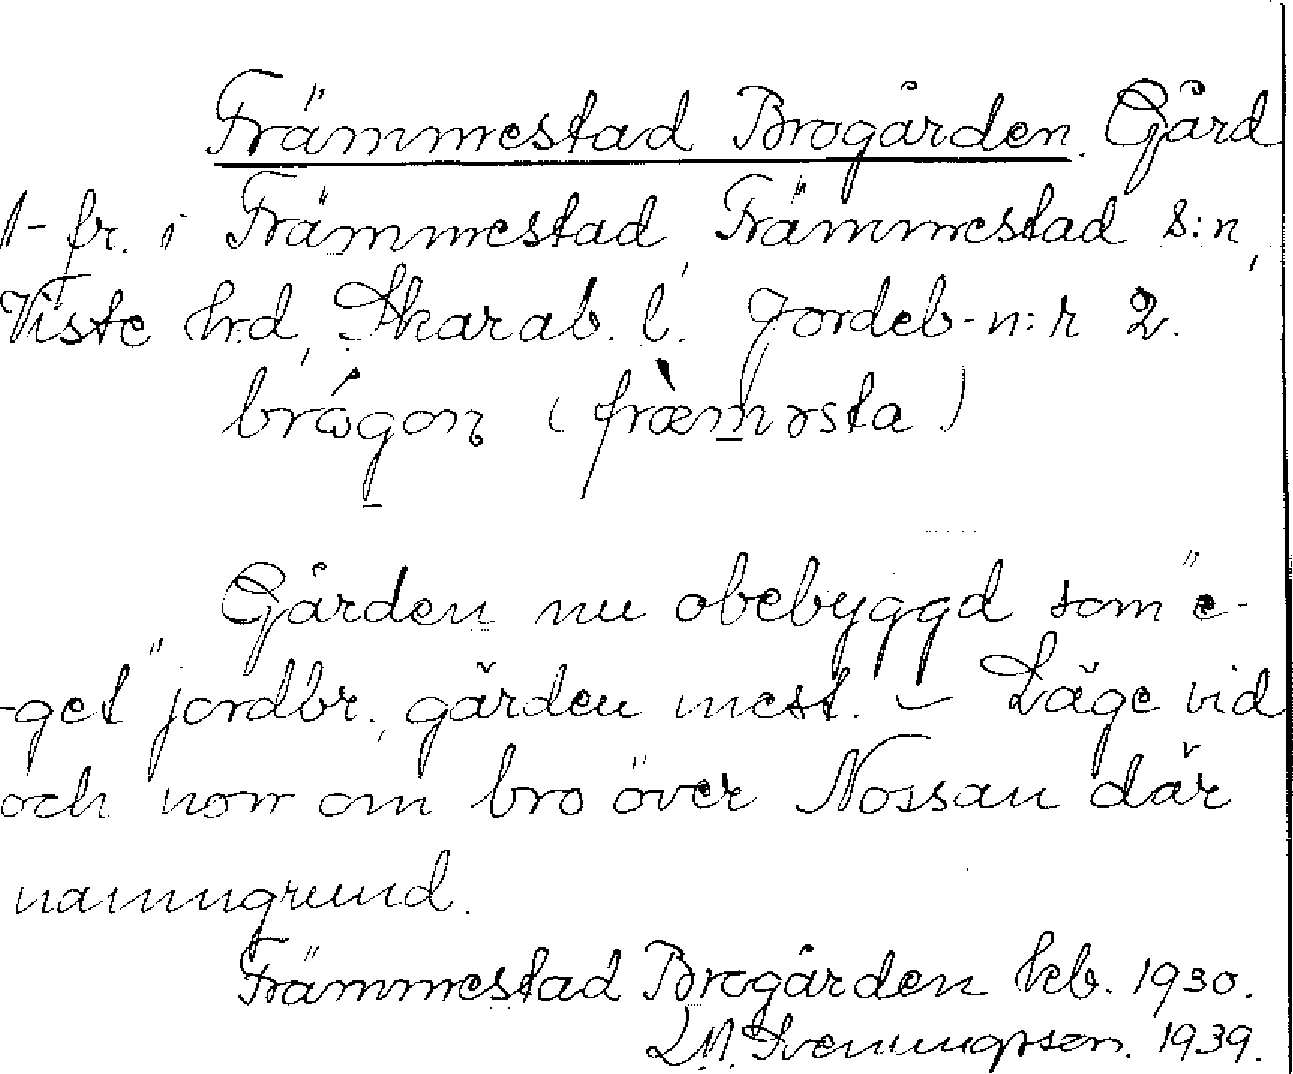 Främmestad Brogården. Gård
1-fr. i Främmestad, Främmestad s:n,
Viste hrd, Skarab. l. Jordeb-n:r 2.
brógon (fræmǝsta)
Gården nu obebyggd som "e-
-get" jordbr., gården mest. - Läge vid
och norr om bro över Nossan där
namngrund.
Främmestad Brogården kb. 1930.
L.M. Svenungsson. 1939.